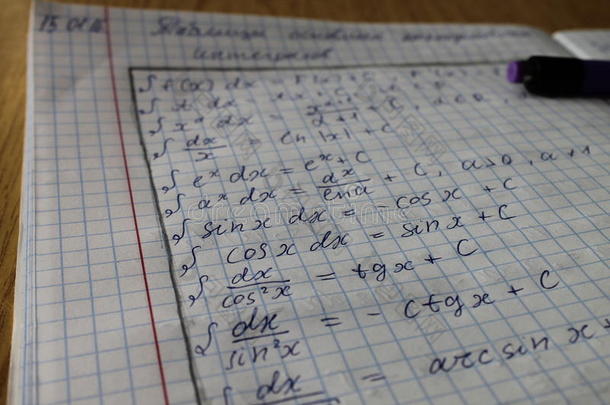 15.01.16 Таблица основных неопределённых
интегралов
∫ f(x) dx = F(x) + C,
∫ dx = x + C
∫ xᵃ dx = xᵃ⁺¹/a+1 + C,
∫ dx/x = ln |x| + C
∫ eˣ dx = eˣ + C
∫ aˣ dx = aˣ/ln a + C, a>0, a≠1
∫ sin x dx = -cos x + C
∫ cos x dx = sin x + C
∫ dx/cos²x = tg x + C
∫ dx/sin²x = - ctg x + C
∫ dx = arcsin x +